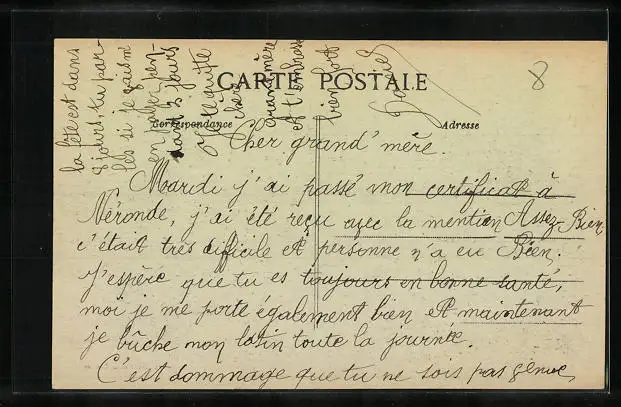 CARTE POSTALE
Correspondance
Adresse
8
Cher grand'mère.
Mardi j'ai passé mon certificat à
Néronde, j'ai été reçu avec la mention Assez-Bien,
c'était très difficile et personne n'a eu Bien.
J'espère que tu es toujours en bonne santé,
moi je me porte également bien et maintenant
je bûche mon latin toute la journée.
C'est dommage que tu ne sois pas venue,
la fête est dans
8 jours, tu par
les si je vais m'
en payer pen-
dant 3 jours
Je te quitte
chère
grand'mère
et t'embrasse
bien fort